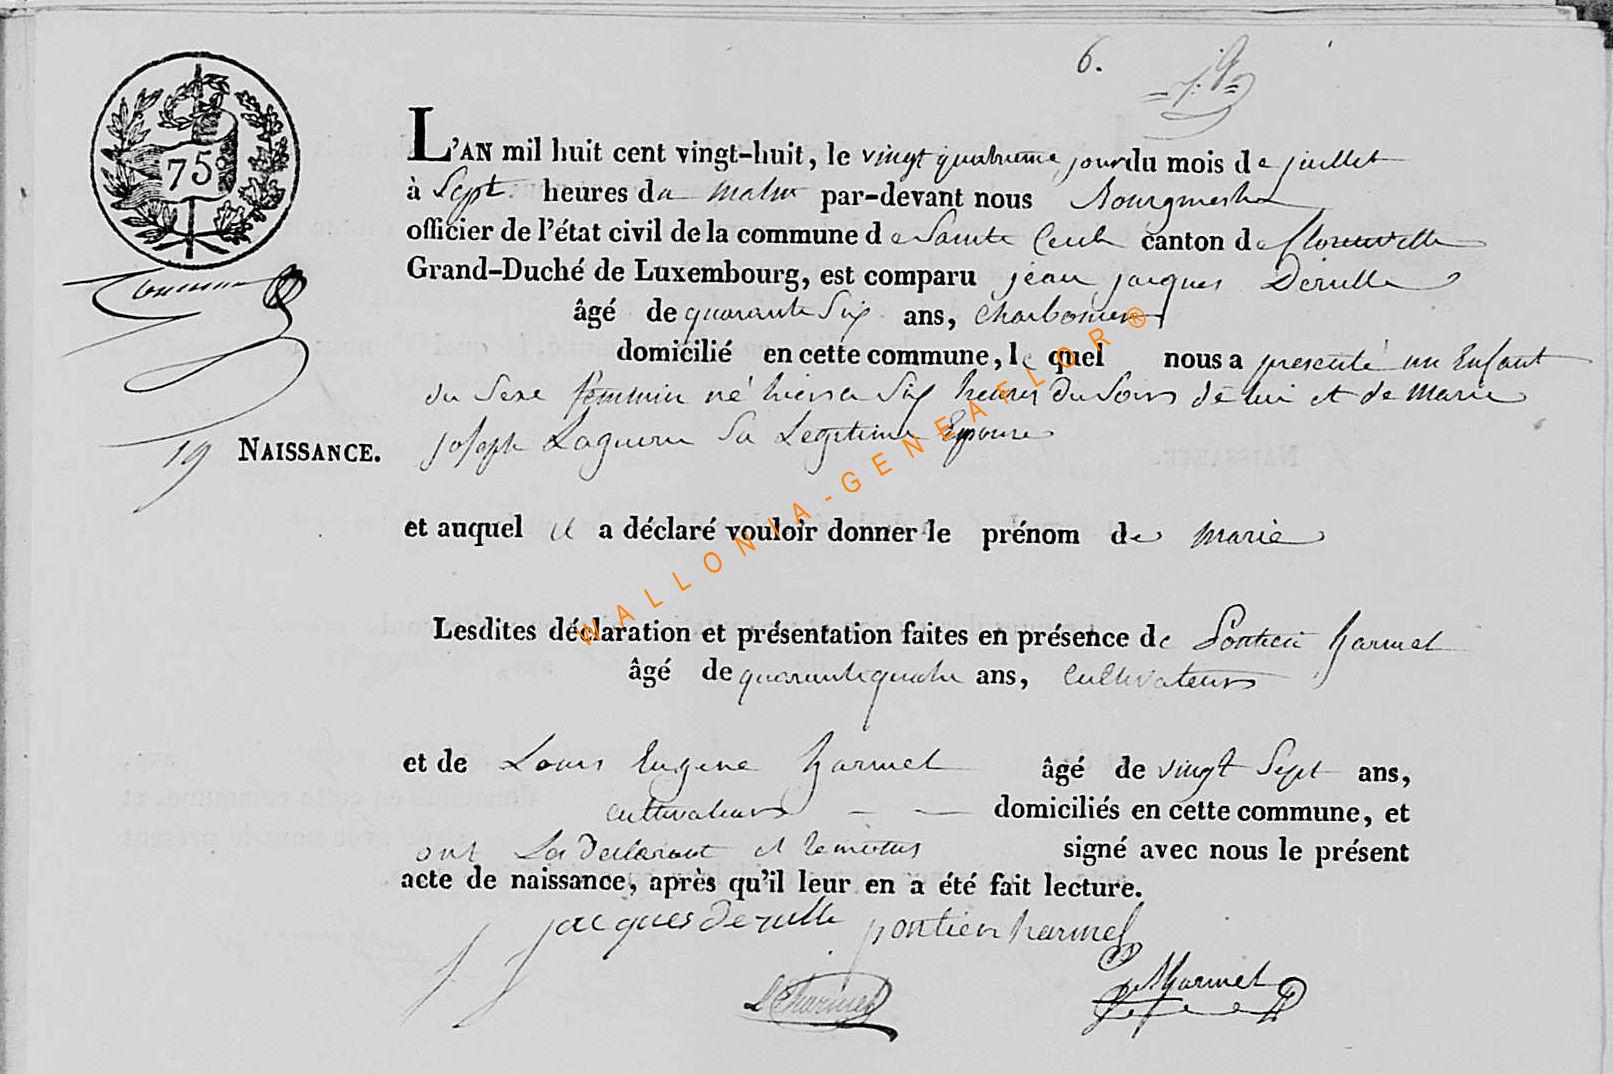 6.
75
L'AN mil huit cent vingt-huit, le vingt quatrieme jour du mois de juillet
à Sept heures du matin par-devant nous Bourgmestre
officier de l'état civil de la commune de Sainte Cecile canton de florenville
Grand-Duché de Luxembourg, est comparu jean jacques Derulle
âgé de quarante Six ans, Charbonier
domicilié en cette commune, lequel nous a presenté un Enfant
du Sexe feminin né hier a Six heures du Soir de lui et de Marie
joseph Laguerre Sa Legitime Epouse
19 NAISSANCE.
et auquel il a déclaré vouloir donner le prénom de marie
Lesdites déclaration et présentation faites en présence de Pontien harmel
âgé de quarante quatre ans, Cultivateur
et de Louis Eugene harmel âgé de vingt Sept ans,
cultivateur domiciliés en cette commune, et
ont Le Declarant et temoins signé avec nous le présent
acte de naissance, après qu'il leur en a été fait lecture.
jacques Derulle pontien harmel
LEharmel
harmel
WALLONIA-GENEAFLOR®